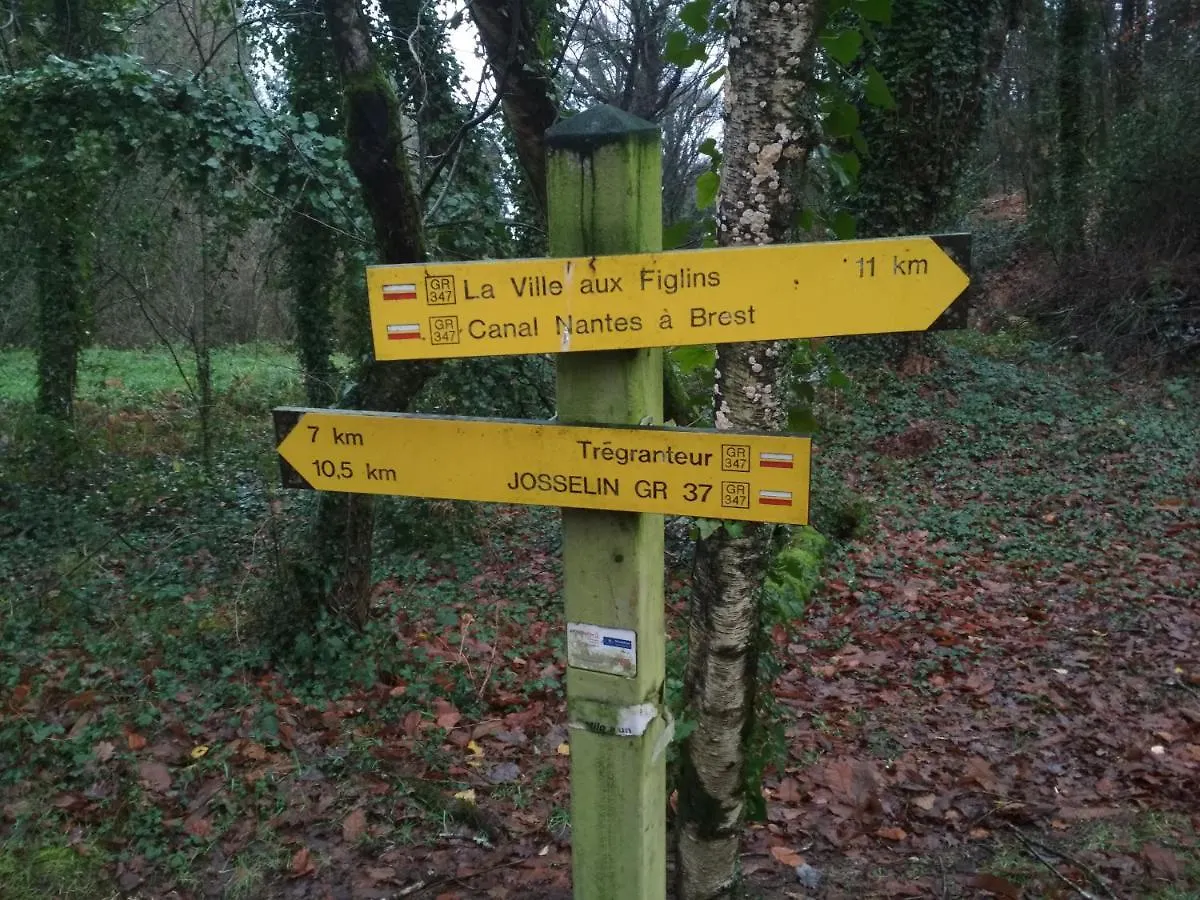 GR 347 La Ville aux Figlins 11 km
GR 347 Canal Nantes à Brest
7 km Trégranteur GR 347
10,5 km JOSSELIN GR 37 GR 347